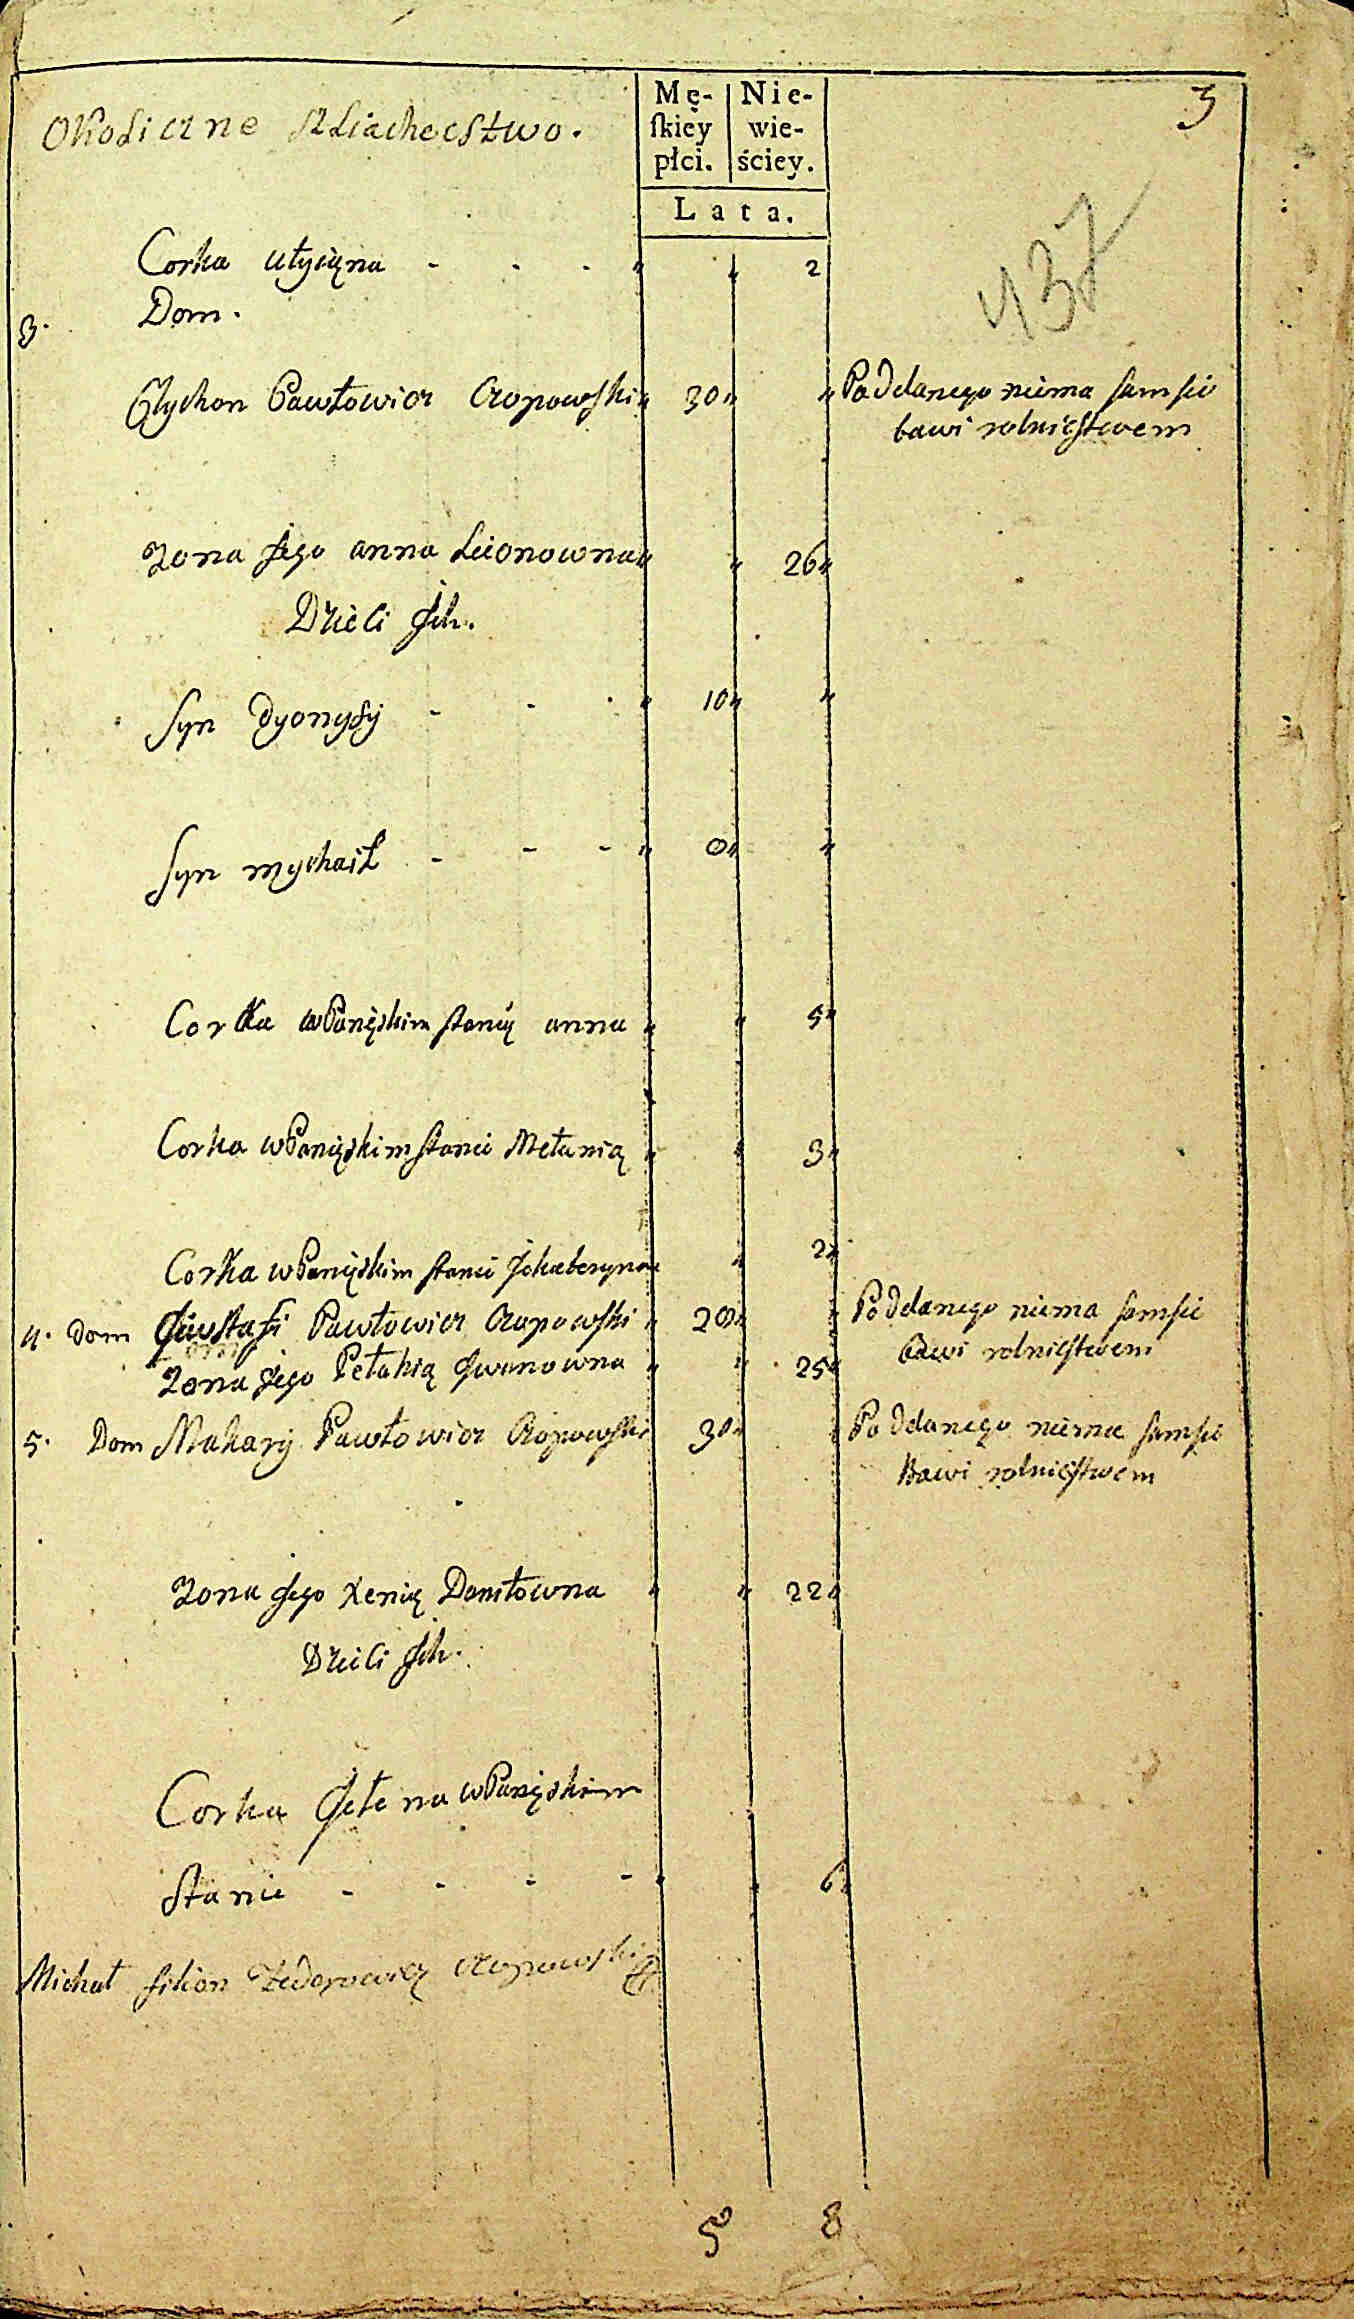 3
Okoliczne szliachectwo.
Mę-
skiey
płci.
Nie-
wie-
ściey.
Lata.
437
Corka Ulyięna - - - " " 2
3. Dom.
Tychon Pawłowicz Czopowski " 30 " " Poddanego niema sam sie
bawi rolnictwem
Zona Jego anna Leonowna " " 26 "
Dzieci Jch.
Syn Dyonysy - - - " 10 " "
Syn mychaił - - - " 0 " "
Corka w Panięskim stanię anna " " 5 "
Corka w Panięskim stanie Mełanią " " 3 "
Corka w Panięskim stanie Jekateryna " " 2 "
4. Dom Jewstafi Pawłowicz Czopowski " 20 " " Poddanego niema sam sie
bawi rolnictwem
Zona Jego Pełahią Jwanowna " " 25 "
5. Dom Makary Pawłowicz Czopowski 30 " " Poddanego niema sam sie
Bawi rolnictwem
Zona Jego Xenię Daniłowna " " 22 "
Dzieci Jch.
Corka Jełena w Panięskim
stanie - - - - " " 6 "
Michał Czopowski
5 8